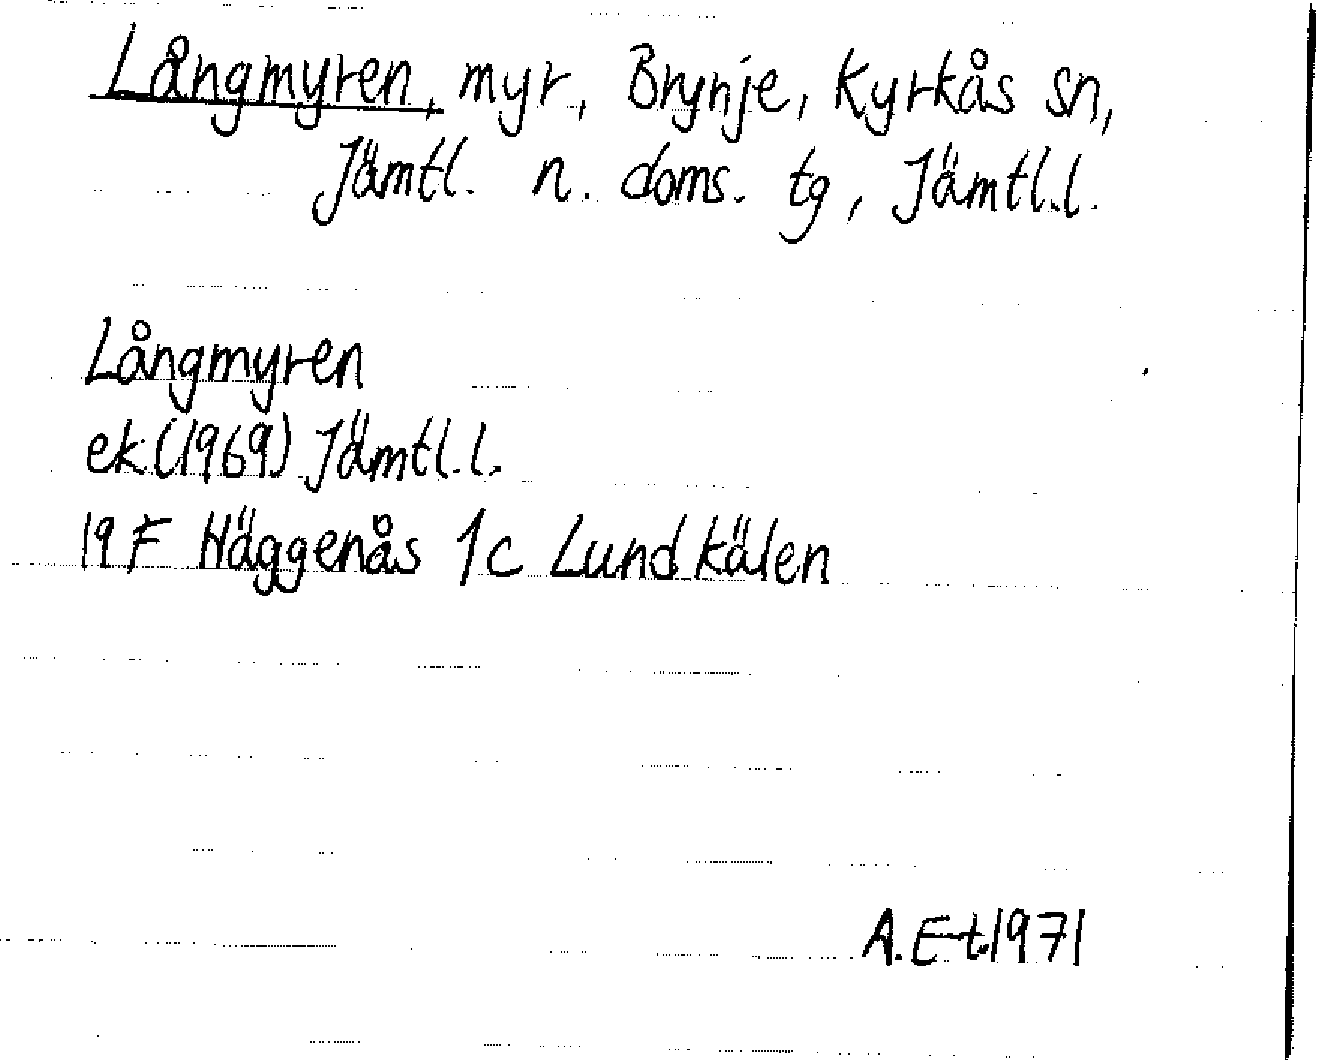 Långmyren, myr, Brynje, Kyrkås sn,
Jämtl. n. doms. tg, Jämtl.l.
Långmyren
ek (1969) Jämtl.l.
19F Häggenås 1c Lundkälen
A.E-t.1971